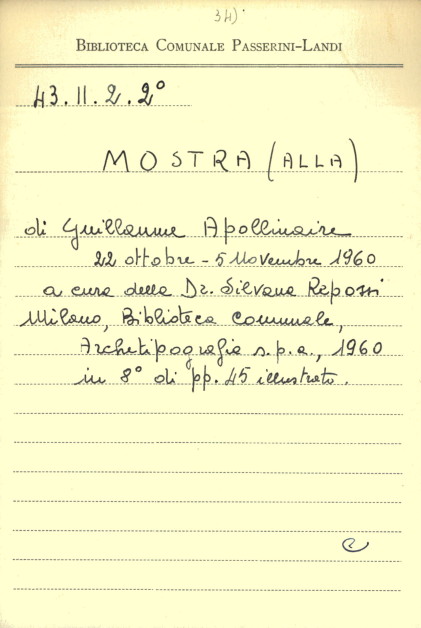 34)
BIBLIOTECA COMUNALE PASSERINI-LANDI
43.II.2.2°
MOSTRA (ALLA)
di Guillaume Apollinaire
22 ottobre - 5 Novembre 1960
a cura della Dr. Silvana Repossi
Milano, Biblioteca Comunale,
Archetipografia s.p.a., 1960
in 8° di pp. 45 illustrato.